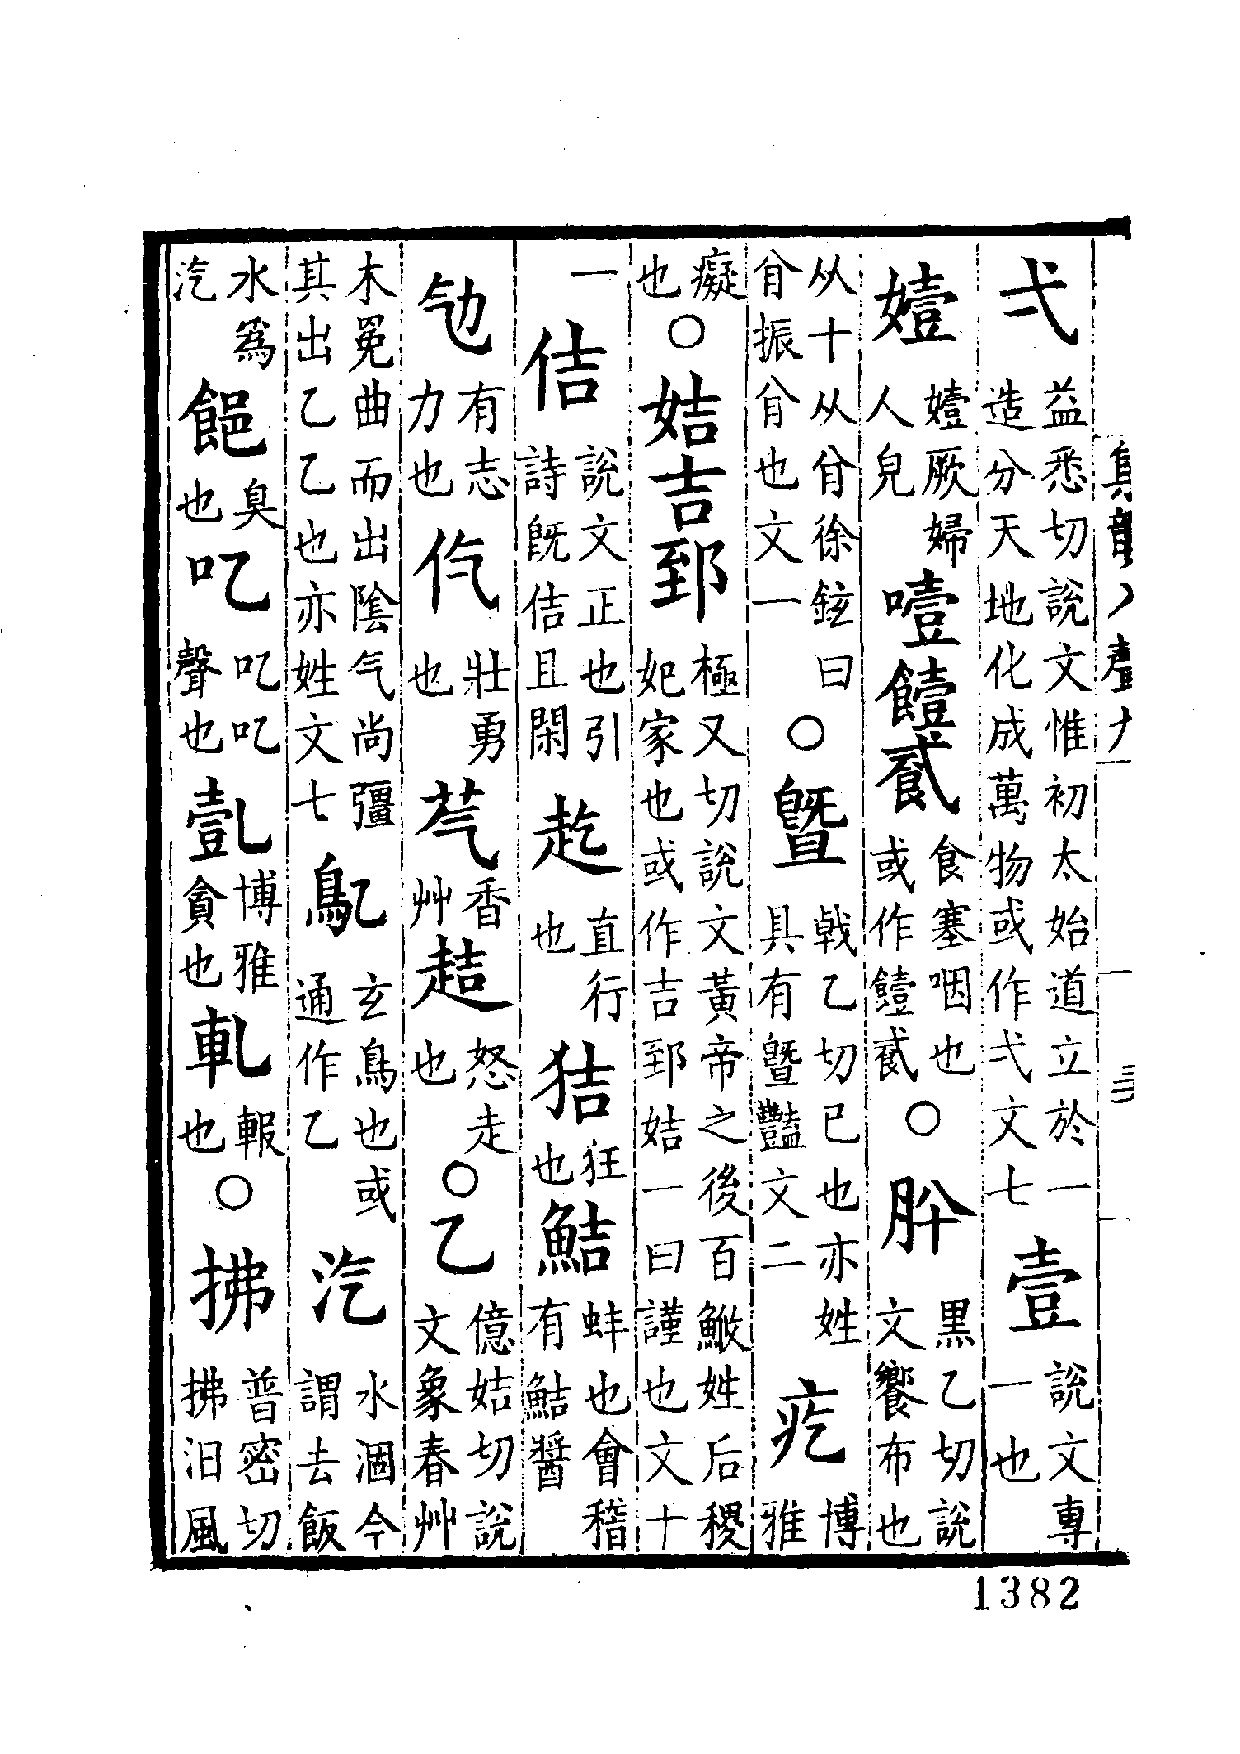 弌益悉切說文惟初太始道立於一造分天地化成萬物或作弌文七壹說文專一也
嬄嬄厥婦人皃噎饐䬥食塞咽也或作饐䬥○肸黑乙切說文饗布也
从十从徐鉉曰振也文一○暨戟乙切已也亦姓具有暨豔文二疙博雅
癡也○姞吉郅極又切說文黃帝之後百鮍姓后稷妃家也或作吉郅姞一曰謹也文十
一佶說文正也引詩旣佶且閑趷直行也狤狂也鮚蚌也會稽有鮚醬
有志力也壯勇也芞香艸趌怒走也○乙億姞切說文象春艸
木冤曲而出陰气尚彊其出乙乙也亦姓文七鳦玄鳥也或通作乙汽水涸今謂去飯
水爲汽臭也吃吃吃聲也博雅貪也軋報也○拂普密切拂汨風
集韻入聲九
三
1382